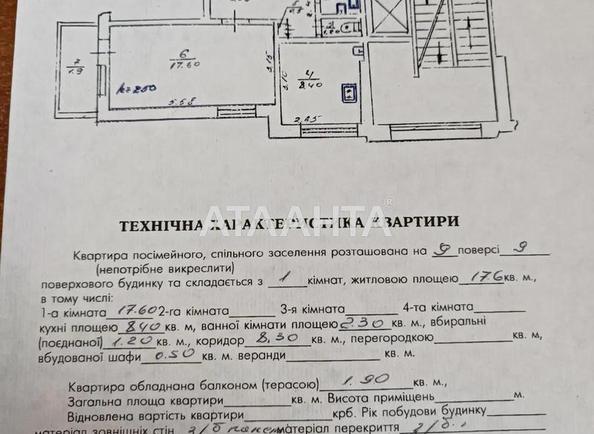 1.20
7
1.9
6
17.60
h=2.50
5.58
3.15
3.10
4
8.40
2.85
АТЛАНТА
ТЕХНІЧНА ХАРАКТЕРИСТИКА КВАРТИРИ
Квартира посімейного, спільного заселення розташована на 9 поверсі 9
(непотрібне викреслити)
поверхового будинку та складається з 1 кімнат, житловою площею 17.6 кв. м.,
в тому числі:
1-а кімната 17.60 2-га кімната 3-я кімната 4-та кімната
кухні площею 8.40 кв. м, ванної кімнати площею 2.30 кв. м., вбиральні
(поєднаної) 1.20 кв. м., коридор 8,30 кв. м., перегородкою кв. м.,
вбудованої шафи 0.50 кв. м. веранди кв. м.
Квартира обладнана балконом (терасою) 1.90 кв. м.,
Загальна площа квартири кв. м. Висота приміщень м.
Відновлена вартість квартири крб. Рік побудови будинку
матеріал зовнішніх стін з/б панел матеріал перекриття з/б.